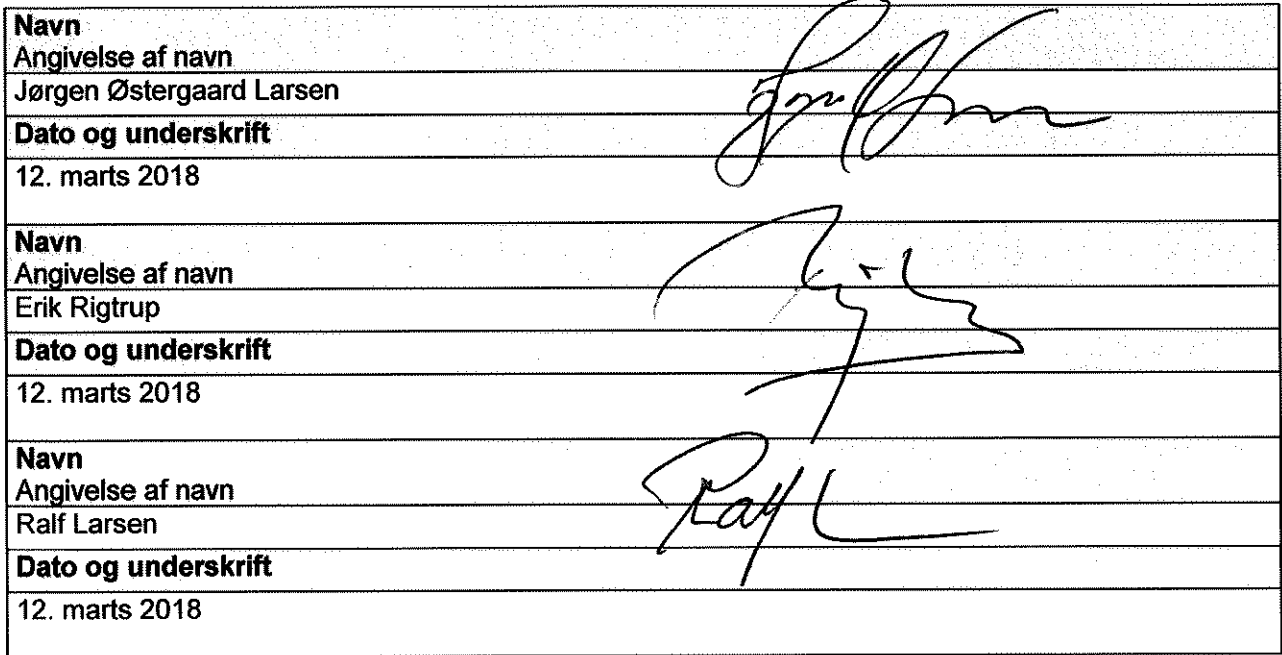 Navn
Angivelse af navn
Jørgen Østergaard Larsen
Dato og underskrift
12. marts 2018
Navn
Angivelse af navn
Erik Rigtrup
Dato og underskrift
12. marts 2018
Navn
Angivelse af navn
Ralf Larsen
Ralf L
Dato og underskrift
12. marts 2018